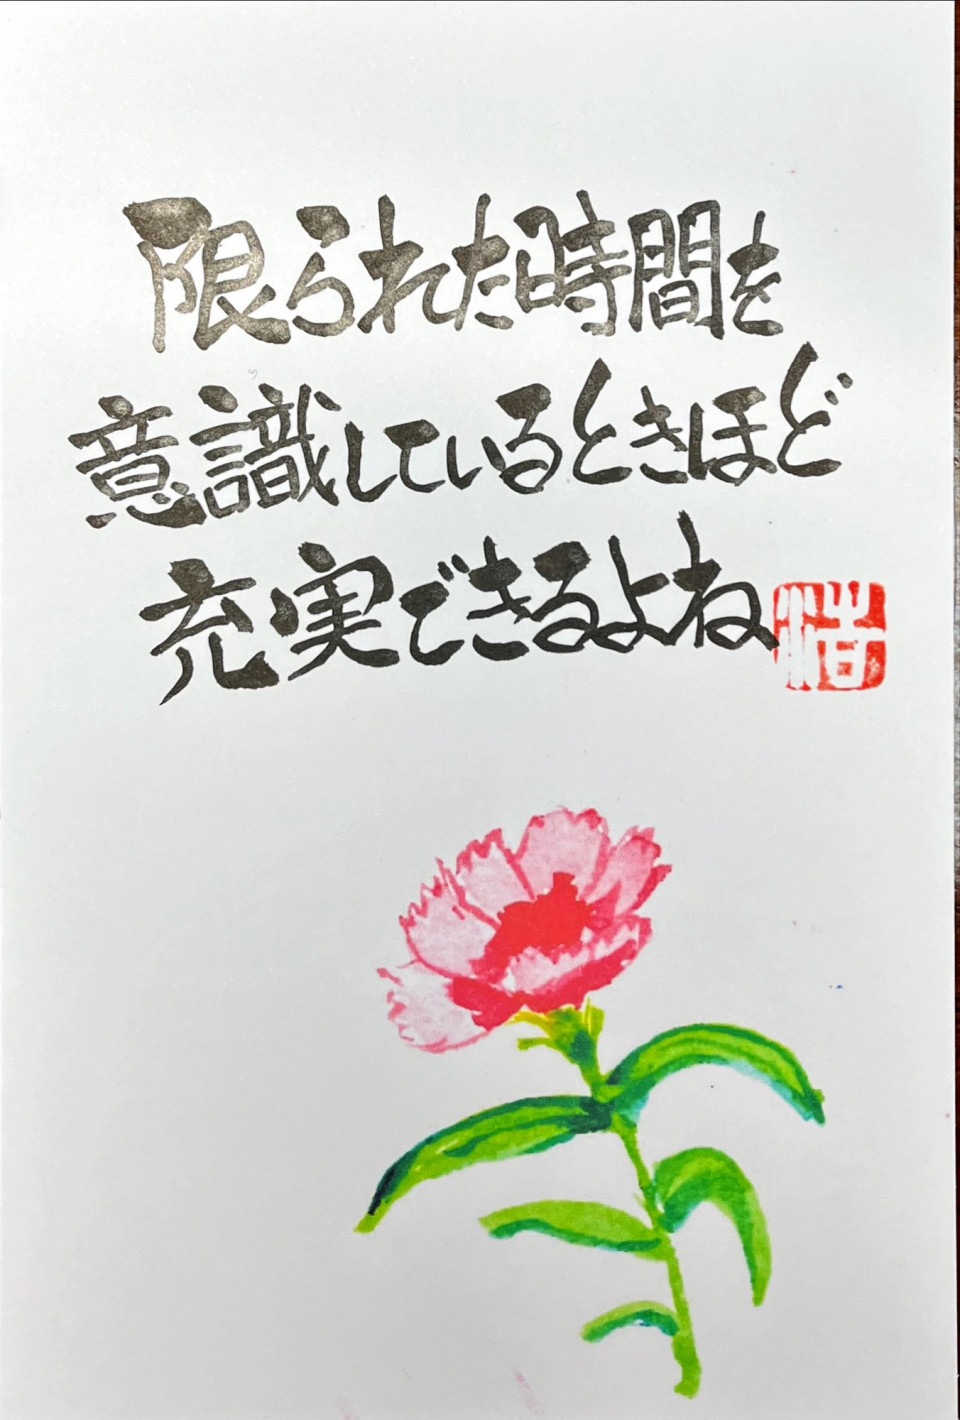 限られた時間を
意識しているときほど
充実できるよね